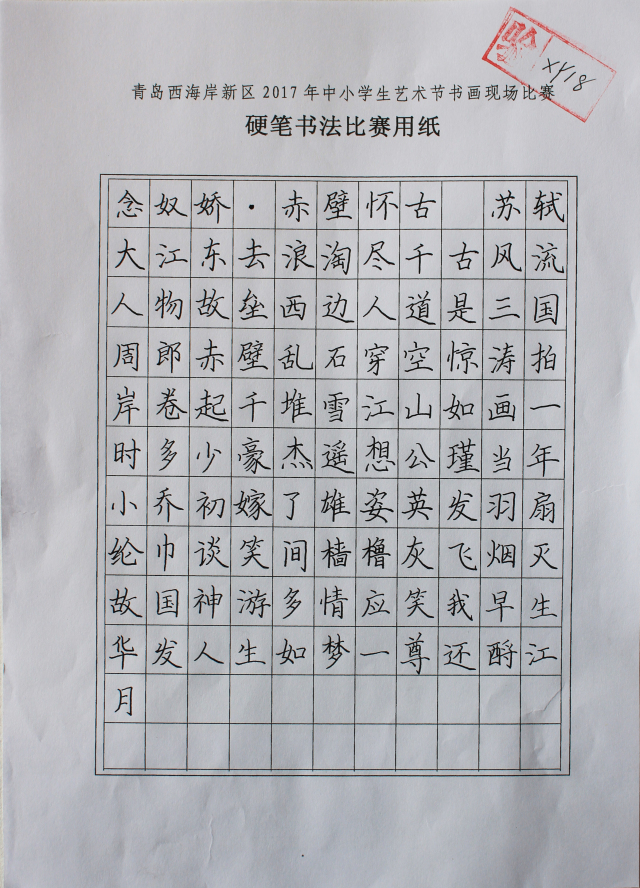 XY18
青岛西海岸新区 2017 年中小学生艺术节书画现场比赛
硬笔书法比赛用纸
念奴娇·赤壁怀古 苏轼
大江东去浪淘尽千古风流
人物故垒西边人道是三国
周郎赤壁乱石穿空惊涛拍
岸卷起千堆雪江山如画一
时多少豪杰遥想公瑾当年
小乔初嫁了雄姿英发羽扇
纶巾谈笑间樯橹灰飞烟灭
故国神游多情应笑我早生
华发人生如梦一尊还酹江
月